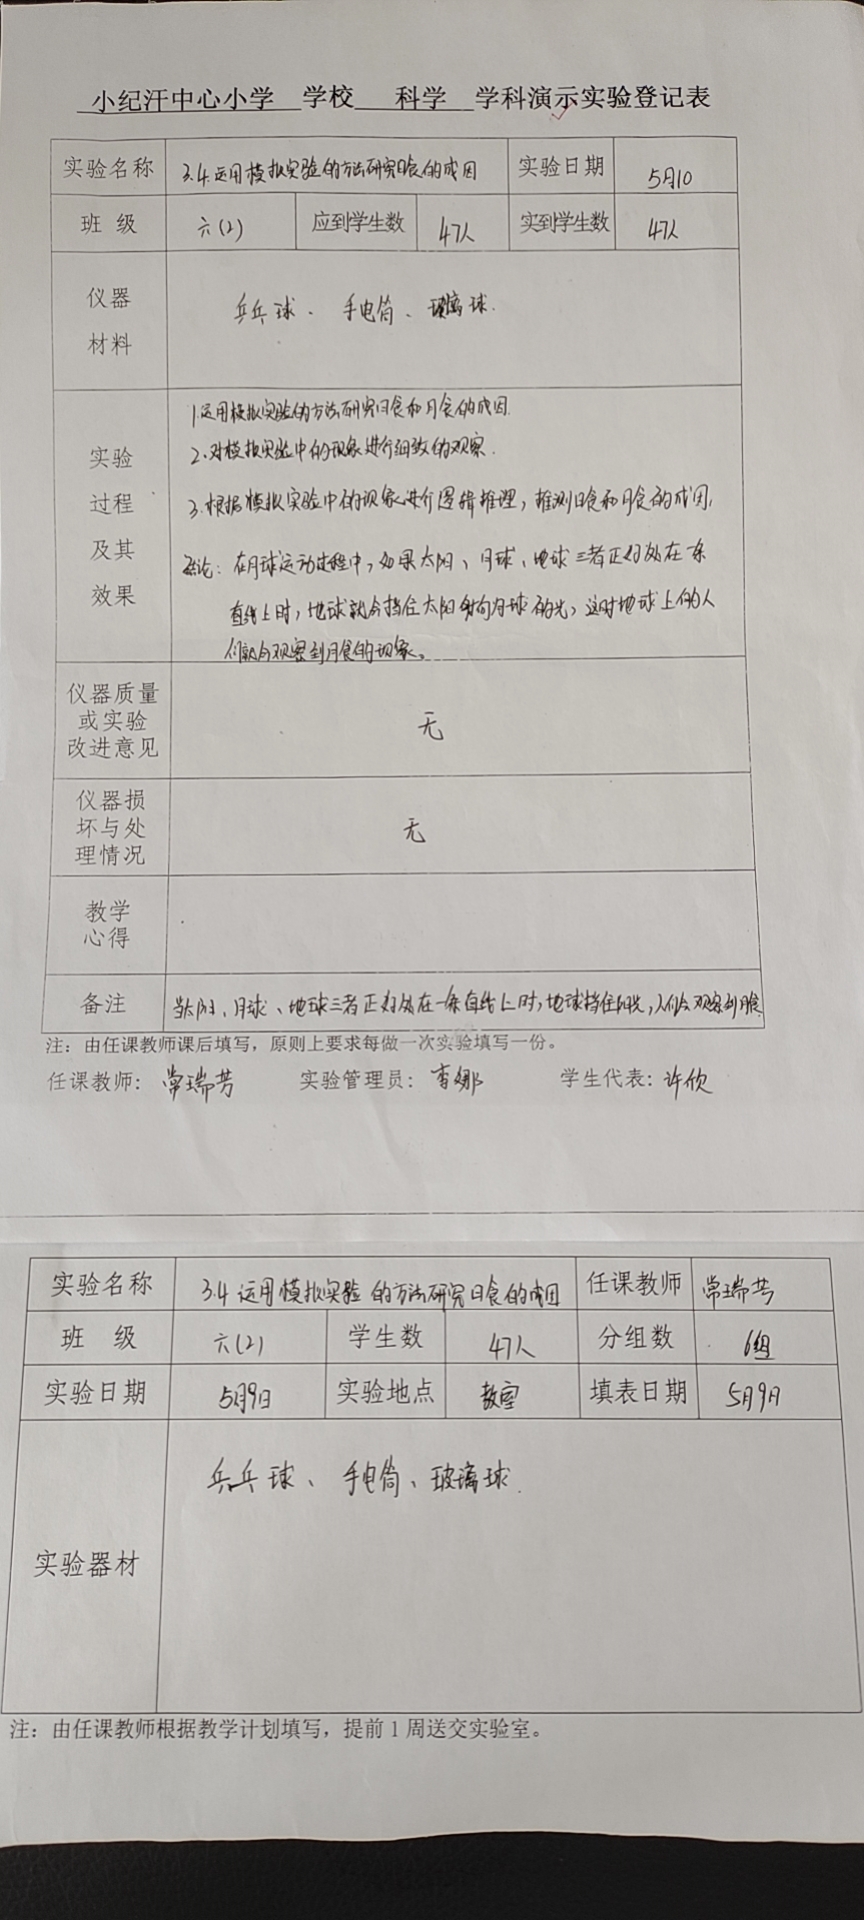 小纪汗中心小学 学校 科学 学科演示实验登记表
实验名称 3.4.运用模拟实验的方法研究日食的成因 实验日期 5月10
班 级 六(2) 应到学生数 47人 实到学生数 47人
仪器
材料
乒乓球、手电筒、玻璃球.
实验
过程
及其
效果
1.运用模拟实验的方法研究日食和月食的成因.
2.对模拟实验中的现象进行细致的观察.
3.根据模拟实验中的现象进行逻辑推理,推测日食和月食的成因,
结论:在月球运动过程中,如果太阳、月球、地球三者正好处在一条
直线上时,地球就会挡住太阳射向月球的光,这时地球上的人
们就会观察到月食的现象。
仪器质量
或实验
改进意见
无
仪器损
坏与处
理情况
无
教学
心得
备注 当太阳、月球、地球三者正好处在一条直线上时,地球挡住阳光,人们会观察到月食
注:由任课教师课后填写,原则上要求每做一次实验填写一份。
任课教师:常瑞芳 实验管理员:李娜 学生代表:许欣
实验名称 3.4 运用模拟实验的方法研究日食的成因 任课教师 常瑞芳
班 级 六(2) 学生数 47人 分组数 6组
实验日期 5月9日 实验地点 教室 填表日期 5月9日
实验器材
乒乓球、手电筒、玻璃球.
注:由任课教师根据教学计划填写,提前1周送交实验室。